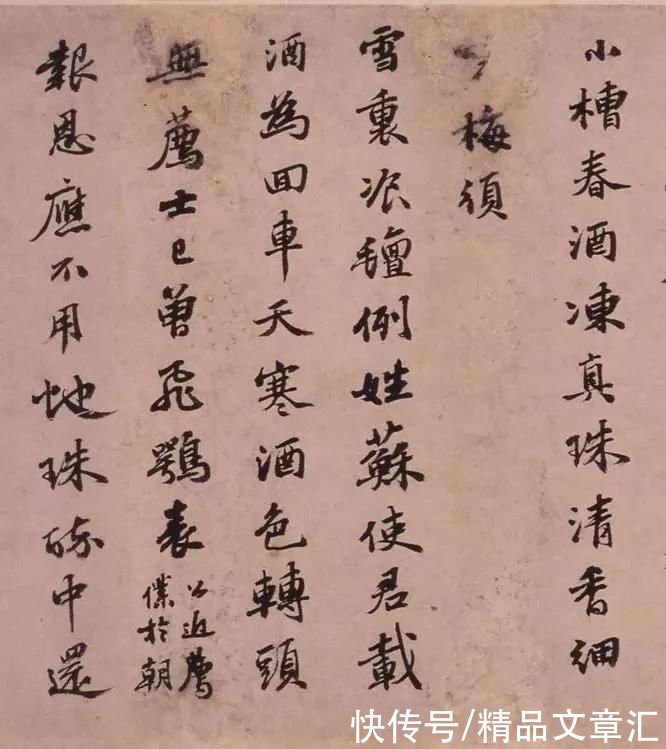 小槽春酒凍真珠清香細
梅須
雪裏飡氊例姓蘇使君載
酒為回車天寒酒色轉頭
無薦士已曾飛鶚表
公近薦
僕於朝
報恩應不用虵珠醉中還
快传号/精品文章汇